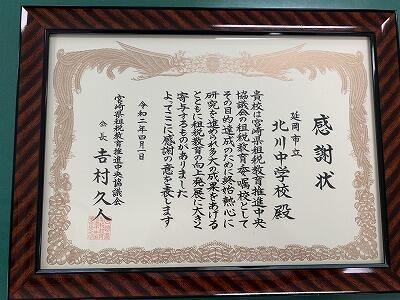 感謝状
延岡市立
北川中学校 殿
貴校は宮崎県租税教育推進中央
協議会の租税教育委嘱校として
その目的達成のために終始熱心に
研究を進められ多大の成果をあげる
とともに租税教育の向上発展に大きく
寄与するものがありました
よってここに感謝の意を表します
令和二年四月一日
宮崎県租税教育推進中央協議会
会長 吉村久人